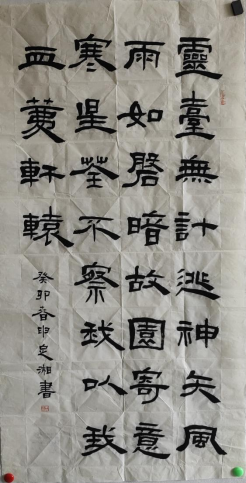 靈臺無計逃神矢風
雨如磬暗故園寄意
寒星荃不察我以我
血薦軒轅
癸卯春申足湘書